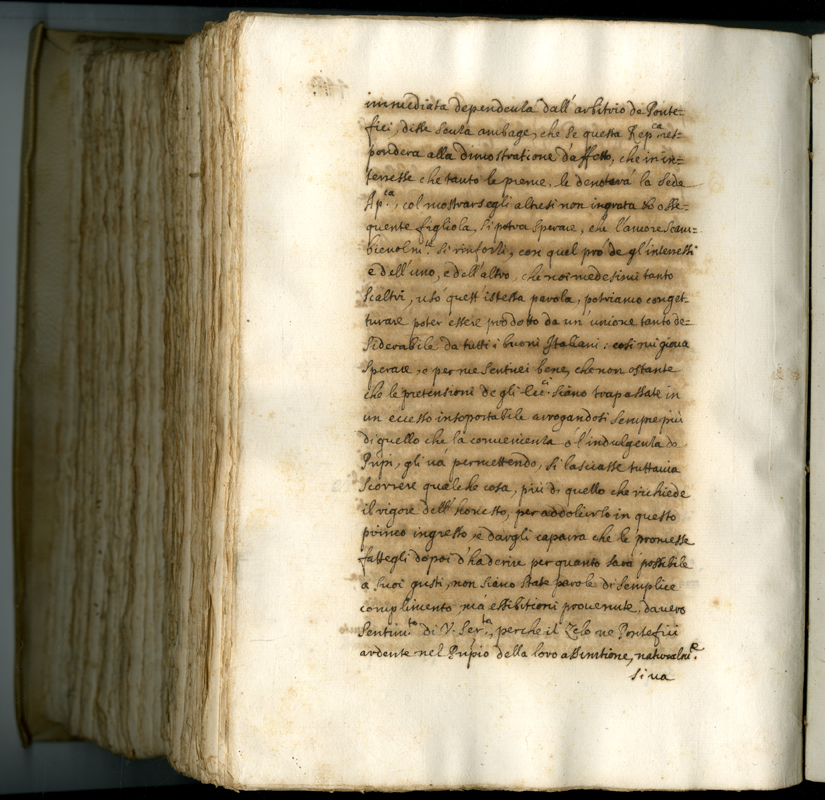 immediata dependenza dall'arbitrio de Ponte=
fici, disse senza ambage, che se questa Rep.ca res=
pondera alla dimostratione d'affetto, che in in=
terresse che tanto le preme, le denoterá la Sede
Ap.ca, col mostrarsegli altresi non ingrata et osse=
quente figliola, si potra sperare, che l'amore scam=
bievolm.te si rinforzi, con quel pro de gl'interressi
e dell'uno, e dell'altro, che noi medesimi tanto
scaltri, usó quest'istessa parola, potriamo conget=
turare poter essere prodotto da un'unione tanto de=
siderabile da tutti i buoni Italiani: cosi mi giova
sperare, e per me sentirei bene, che non ostante
che le pretensioni de gli Ecc.ci siano trapassate in
un eccesso insoportabile arrogandosi sempre piú
di quello che la convenienza ó l'indulgenza de
Prñpi, gli vá permettendo, si lasciasse tuttavia
scorrere qualche cosa, piú di quello che richiede
il rigore dell'honesto, per addolcirlo in questo
primo ingresso, e dargli caparra che le promesse
fattegli dopoi d'haderire per quanto sará possibile
a suoi gusti, non siano state parole di semplice
complimento má essibitioni provenute, da vero
sentim.to di V. Ser.ta, perche il zelo ne Pontefici
ardente nel Prñpio della loro assuntione, naturalm.e
si va